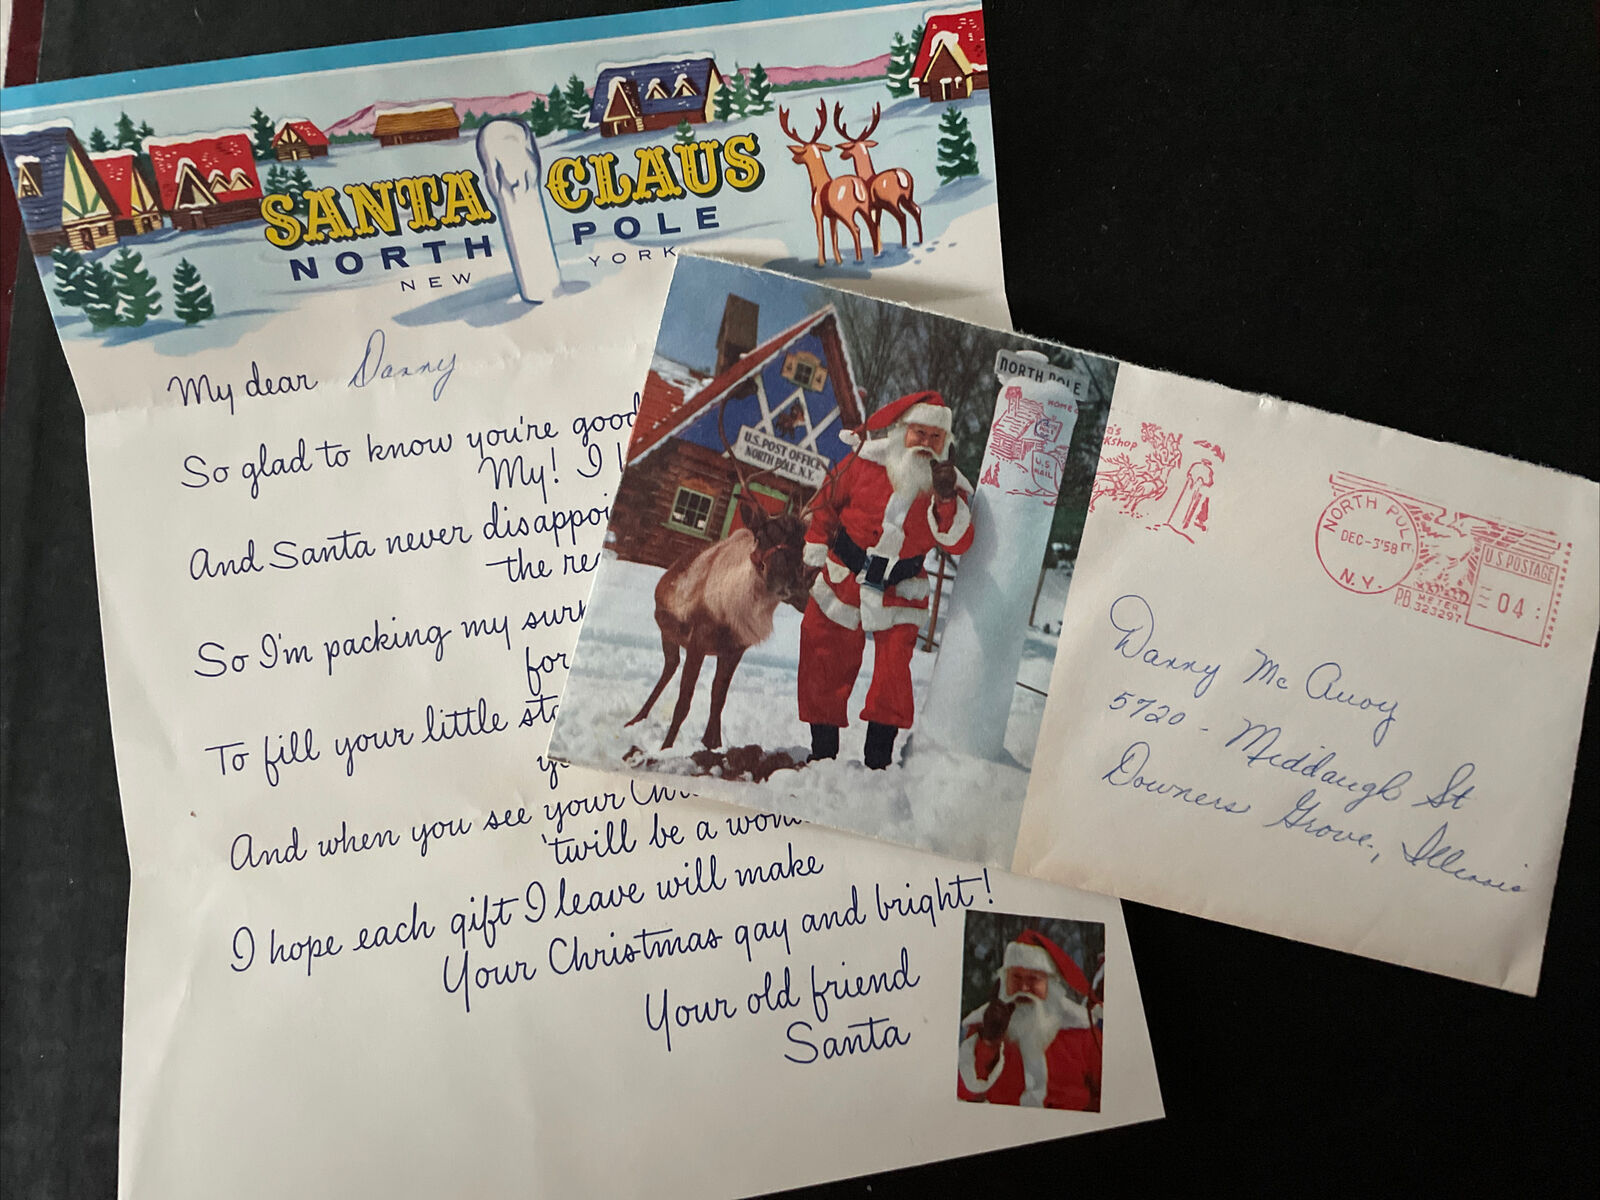 SANTA CLAUS
NORTH POLE
NEW YORK
My dear Danny
So glad to know you're good
My! I
And Santa never
the
So I'm packing my
for
To fill your little
And when you see your
'twill be a
I hope each gift I leave will make
Your Christmas gay and bright!
Your old friend
Santa
U.S. POST OFFICE
NORTH POLE, N.Y.
NORTH POLE
HOME
U.S.
MAIL
NORTH POLE
DEC-3'58
N.Y.
U.S. POSTAGE
04
P.B. METER
323297
Danny Mc Avoy
5720 - Middaugh St
Downers Grove, Illinois